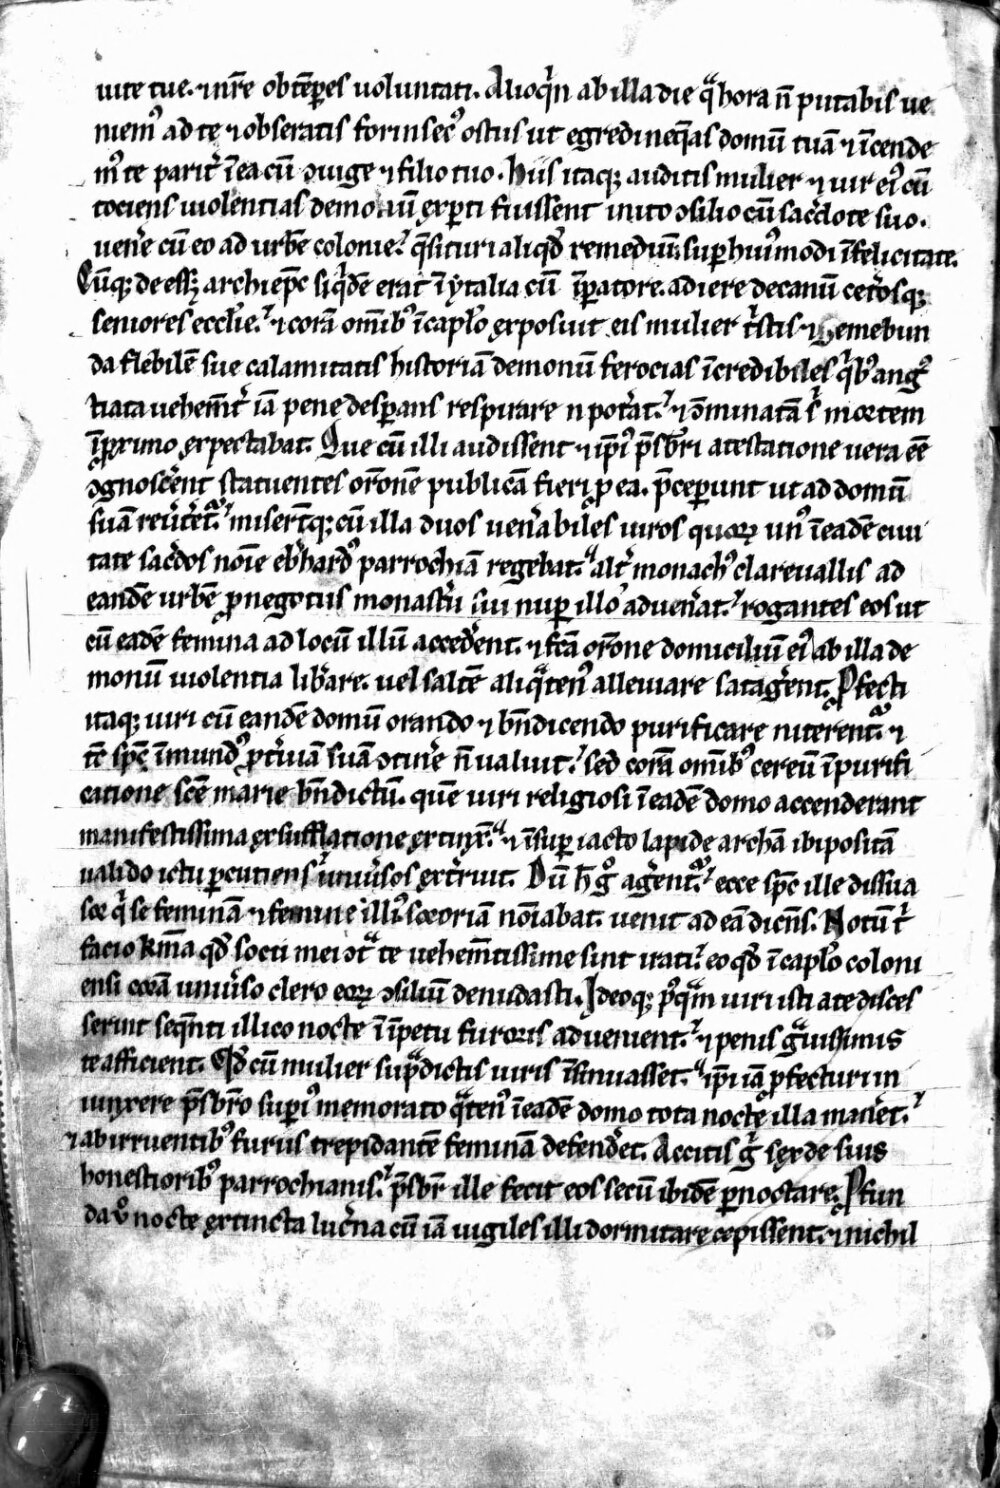 uite tue. ⁊ nr̄e obtēꝑes uoluntati. Alioqͥn ab illa die qͣ hora n̄ putabis ue
niemꝰ ad te ⁊ obseratis forinsecꝰ ostiis ut egredi neq̄as domū tuā ⁊ īcende
mꝰ te parit̄ ī ea cū ↄiuge ⁊ filio tuo. Hiis itaqꝫ auditis mulier ⁊ uir eiꝰ cū
tociens uiolentias demonū exꝑti fuissent inito ↄsilio cū sac̄dote suo.
uener̄e cū eo ad urbē colonie. q̄situri aliqͥd remediū suꝑ huiꝰmodi īfelicitate.
Cūqꝫ deesset archiepc̄ siqͥdē erat ī ytalia cū īꝑatore. adiere decanū cet̄osqꝫ
seniores eccl̄ie. ⁊ corā om̄ibꝰ ī capl̄o exposuit eis mulier tͥstis ⁊ gemebun
da flebilē sue calamitatis historiā demonū ferocias īcredibiles qͥbꝰ angꝰ
tiata uehem̄t̄ iā pene desꝑans respirare n̄ pot̄at. ⁊ ↄminatā sͥ mortem
ī ꝓximo expectabat. Que cū illi audissent ⁊ ip̄iꝰ p̄sbr̄i atestatione uera ee̅
ↄgnosc̄ent statuentes or̄onē publicā fieri ꝓ ea. p̄ceꝑunt ut ad domū
suā reūtet̄. miser̄tqꝫ cū illa duos uen̄abiles uiros quoꝝ unꝰ ī eadē ciui
tate sac̄dos noīe eb̄hardꝰ parrochiā regebat. alt̄ monachꝰ clareuallis ad
eandē urbē ꝓ negotiis monast̄ii sui nuꝑ illo aduen̄at. rogantes eos ut
cū eadē femina ad locū illū acced̄ent. ⁊ fc̄a or̄one domiciliū eiꝰ ab illa de
monū uiolentia lib̄are. uel saltē aliqͣtenꝰ alleuiare sataḡent. Ꝓfecti
itaqꝫ uiri cū eandē domū orando ⁊ bn̄dicendo purificare niterent̄. ⁊
tc̄ spc̄ īmundꝰ ꝓt̄uiā suā ↄtin̄e n̄ ualuit. sed corā om̄ibꝰ cereū ī purifi
catione sc̄e marie bn̄dictū. quē uiri religiosi ī eadē domo accenderant
manifestissima exsufflatione extinx̄. ⁊ īsuꝑ iacto lapide archā ibi positā
ualido ictu ꝑcutiens uniūsos ext̄ruit. Dū h̄ gͦ agerent̄. ecce spc̄ ille dissua
sor qͥ se feminā ⁊ femine illiꝰ sororiā noīabat. uenit ad eā dicn̄s. Notū tͥ
facio kma̅ qd̄ socii mei ↄtͣ te uehem̄tissime sint irati. eo qd̄ ī capl̄o coloni
ensi corā uniūso clero eoꝝ ↄsiliū denudasti. Ideoqꝫ pꝰqͣm uiri isti a te disces
serint seq̄nti illico nocte ī īpetu furoris aduenient. ⁊ penis gͣuissimis
te afficient. Qd̄ cū mulier supͣdictis uiris īsinuasset. ip̄i iā ꝓfecturi in
iunxere p̄sbr̄o suꝑiꝰ memorato qͣtenꝰ ī eadē domo tota nocte illa man̄et.
⁊ ab irruentibꝰ furiis trepidantē feminā defend̄et. Accitis gͥ sex de suis
honestioribꝰ parrochianis. p̄sbr̄ ille fecit eos secū ibidē ꝑnoctare. Ꝓfun
da ūo nocte extincta luc̄na cū iā uigiles illi dormitare cepissent. ⁊ nichil